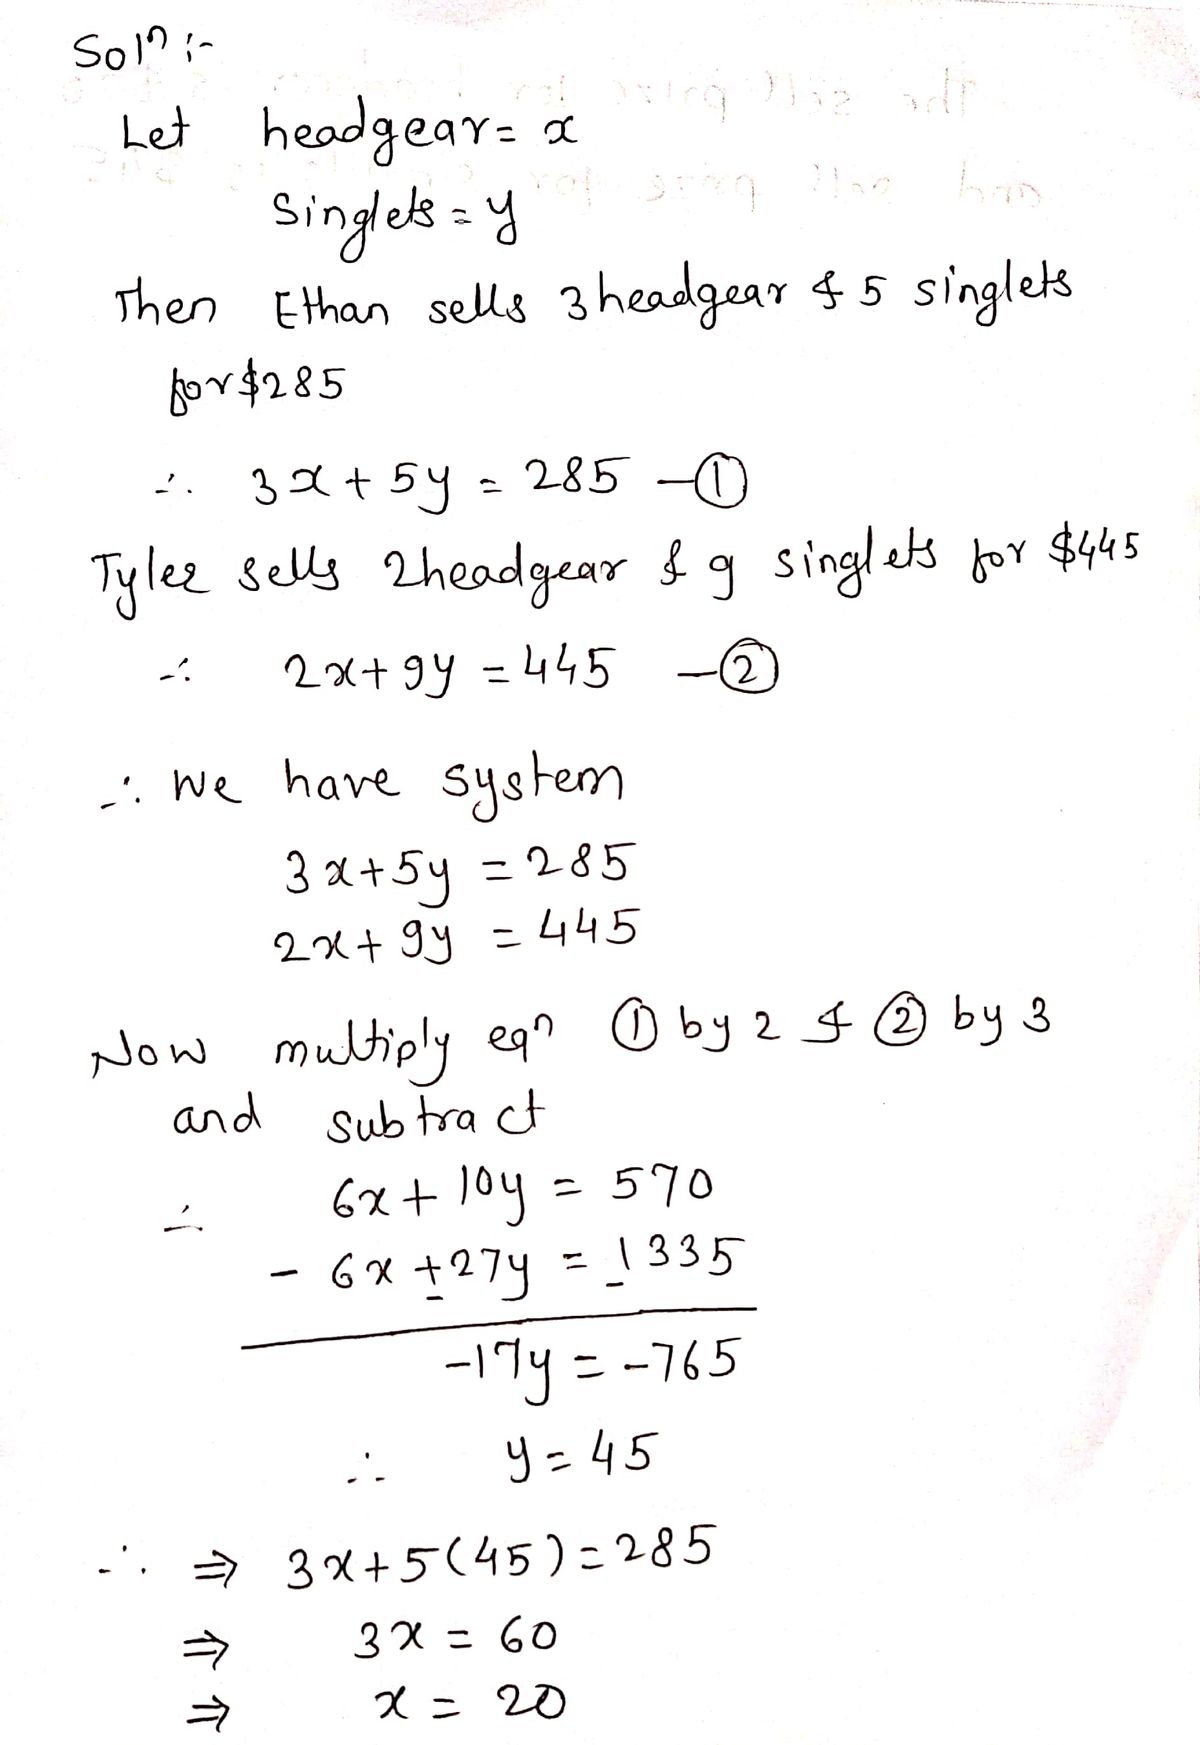 Solⁿ :-
Let headgear = x
Singlets = y
Then Ethan sells 3 headgear & 5 singlets
for $285
∴ 3x + 5y = 285 —①
Tyler sells 2 headgear & 9 singlets for $445
∴ 2x + 9y = 445 —②
∴ We have system
3x + 5y = 285
2x + 9y = 445
Now multiply eqⁿ ① by 2 & ② by 3
and subtract
∴ 6x + 10y = 570
- 6x ± 27y = _1335
-17y = -765
∴ y = 45
∴ ⇒ 3x + 5(45) = 285
⇒ 3x = 60
⇒ x = 20